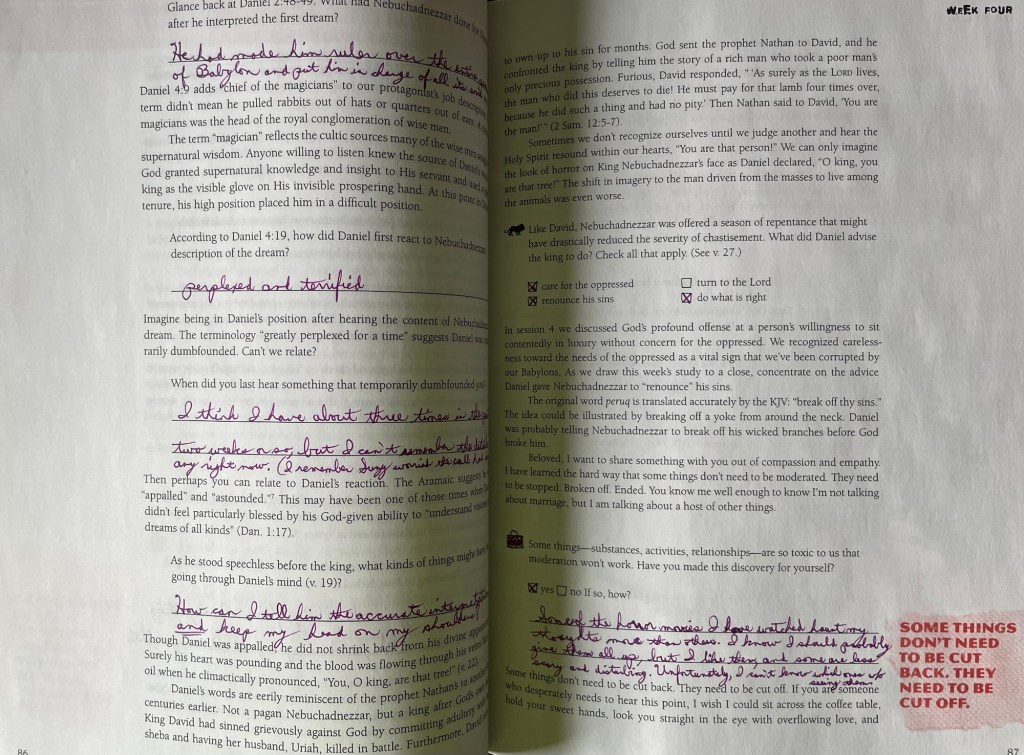 Glance back at Daniel 2:48-49. What had Nebuchadnezzar done for
after he interpreted the first dream?
He had made him ruler over the entire
of Babylon and put him in charge of all its
Daniel 4:9 adds "chief of the magicians" to our protagonist's job
term didn't mean he pulled rabbits out of hats or quarters out of ears.
magicians was the head of the royal conglomeration of wise men.
The term "magician" reflects the cultic sources many of the wise men
supernatural wisdom. Anyone willing to listen knew the source of Daniel's
God granted supernatural knowledge and insight to His servant and used
king as the visible glove on His invisible prospering hand. At this point in
tenure, his high position placed him in a difficult position.
According to Daniel 4:19, how did Daniel first react to Nebuchadnezzar
description of the dream?
perplexed and terrified
Imagine being in Daniel's position after hearing the content of
dream. The terminology "greatly perplexed for a time" suggests Daniel was
rarily dumbfounded. Can't we relate?
When did you last hear something that temporarily dumbfounded you
I think I have about three times in the
two weeks or so, but I can't remember the
any right now. (I remember the call
Then perhaps you can relate to Daniel's reaction. The Aramaic suggests
"appalled" and "astounded."7 This may have been one of those times when
didn't feel particularly blessed by his God-given ability to "understand
dreams of all kinds" (Dan. 1:17).
As he stood speechless before the king, what kinds of things might
going through Daniel's mind (v. 19)?
How can I tell him the accurate
and keep my head on my shoulders
Though Daniel was appalled, he did not shrink back from his divine
Surely his heart was pounding and the blood was flowing through his
oil when he climactically pronounced, "You, O king, are that tree!" (v. 22).
Daniel's words are eerily reminiscent of the prophet Nathan's to
centuries earlier. Not a pagan Nebuchadnezzar, but a king after God's
King David had sinned grievously against God by committing adultery with
sheba and having her husband, Uriah, killed in battle. Furthermore, David
86
WEEK FOUR
to own up to his sin for months. God sent the prophet Nathan to David, and he
confronted the king by telling him the story of a rich man who took a poor man's
only precious possession. Furious, David responded, " 'As surely as the LORD lives,
the man who did this deserves to die! He must pay for that lamb four times over,
because he did such a thing and had no pity.' Then Nathan said to David, 'You are
the man!' " (2 Sam. 12:5-7).
Sometimes we don't recognize ourselves until we judge another and hear the
Holy Spirit resound within our hearts, "You are that person!" We can only imagine
the look of horror on King Nebuchadnezzar's face as Daniel declared, "O king, you
are that tree!" The shift in imagery to the man driven from the masses to live among
the animals was even worse.
Like David, Nebuchadnezzar was offered a season of repentance that might
have drastically reduced the severity of chastisement. What did Daniel advise
the king to do? Check all that apply. (See v. 27.)
☒ care for the oppressed ☐ turn to the Lord
☒ renounce his sins ☒ do what is right
In session 4 we discussed God's profound offense at a person's willingness to sit
contentedly in luxury without concern for the oppressed. We recognized careless-
ness toward the needs of the oppressed as a vital sign that we've been corrupted by
our Babylons. As we draw this week's study to a close, concentrate on the advice
Daniel gave Nebuchadnezzar to "renounce" his sins.
The original word peruq is translated accurately by the KJV: "break off thy sins."
The idea could be illustrated by breaking off a yoke from around the neck. Daniel
was probably telling Nebuchadnezzar to break off his wicked branches before God
broke him.
Beloved, I want to share something with you out of compassion and empathy.
I have learned the hard way that some things don't need to be moderated. They need
to be stopped. Broken off. Ended. You know me well enough to know I'm not talking
about marriage, but I am talking about a host of other things.
Some things—substances, activities, relationships—are so toxic to us that
moderation won't work. Have you made this discovery for yourself?
☒ yes ☐ no If so, how?
Some of the horror movies I have watched haunt my
thoughts more than others. I know I should probably
give them all up, but I like them and some are less
scary and disturbing. Unfortunately, I can't know which ones
seeing them.
Some things don't need to be cut back. They need to be cut off. If you are someone
who desperately needs to hear this point, I wish I could sit across the coffee table,
hold your sweet hands, look you straight in the eye with overflowing love, and
SOME THINGS
DON'T NEED
TO BE CUT
BACK. THEY
NEED TO BE
CUT OFF.
87